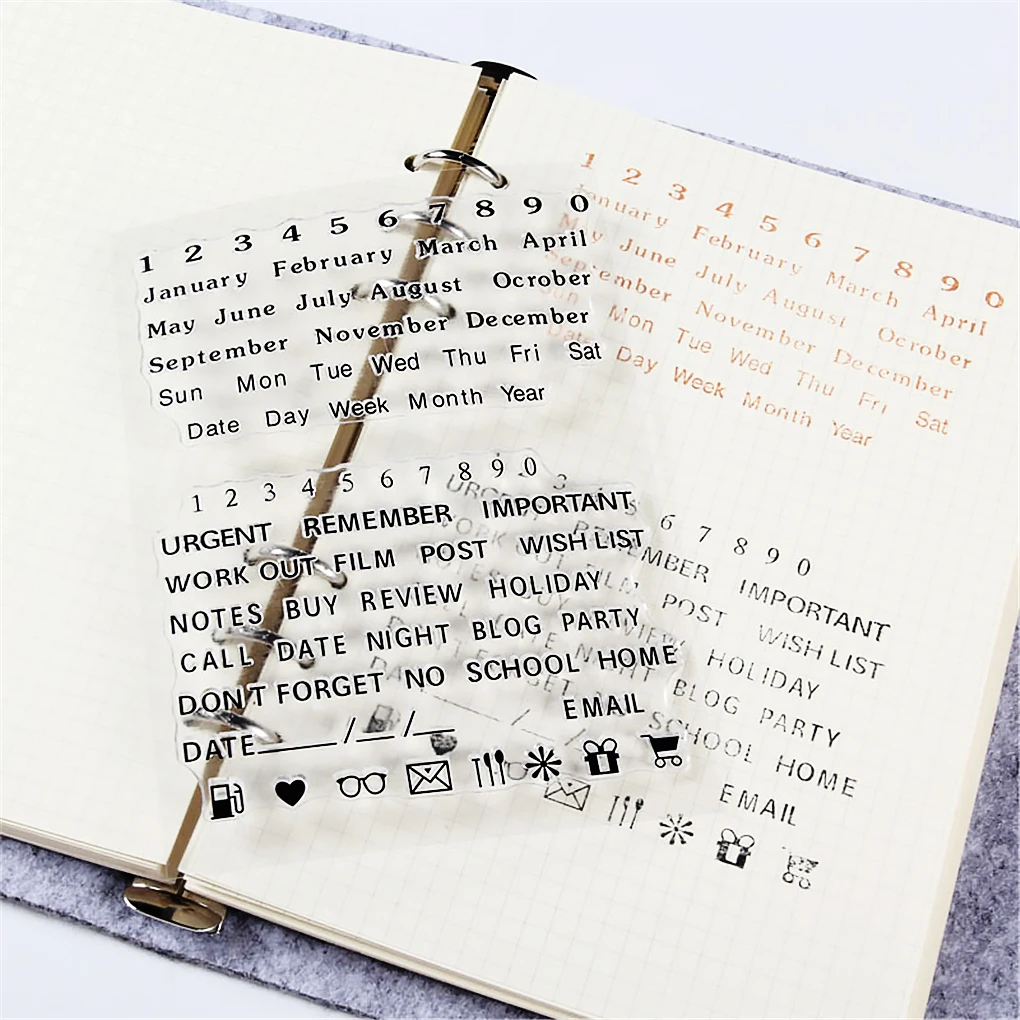 1 2 3 4 5 6 7 8 9 0
January February March April
May June July August Ocrober
September November December
Sun Mon Tue Wed Thu Fri Sat
Date Day Week Month Year
1 2 3 4 5 6 7 8 9 0
URGENT REMEMBER IMPORTANT
WORK OUT FILM POST WISH LIST
NOTES BUY REVIEW HOLIDAY
CALL DATE NIGHT BLOG PARTY
DON'T FORGET NO SCHOOL HOME
EMAIL
DATE_____/__/__
1 2 3 4 5 6 7 8 9 0
January February March April
May June July August Ocrober
September November December
Sun Mon Tue Wed Thu Fri Sat
Date Day Week Month Year
6 7 8 9 0
IMPORTANT
POST WISH LIST
HOLIDAY
BLOG PARTY
SCHOOL HOME
EMAIL